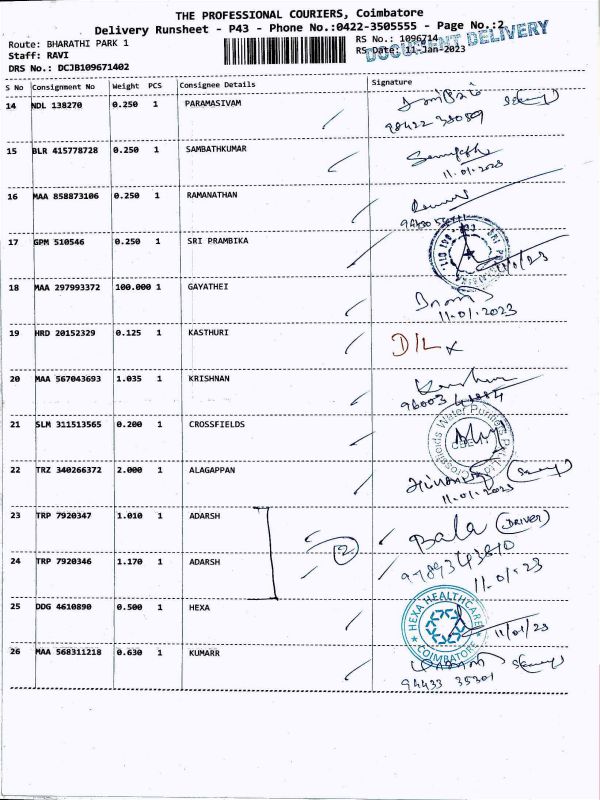 THE PROFESSIONAL COURIERS, Coimbatore
Delivery Runsheet - P43 - Phone No.:0422-3505555 - Page No.:2
Route: BHARATHI PARK 1 RS No.: 1096714
Staff: RAVI RS Date: 11-Jan-2023
DOCUMENT DELIVERY
DRS No.: DCJB109671402
S No Consignment No Weight PCS Consignee Details Signature
14 NDL 138270 0.250 1 PARAMASIVAM
15 BLR 415778728 0.250 1 SAMBATHKUMAR
11.01.2023
16 MAA 858873106 0.250 1 RAMANATHAN
17 GPM 510546 0.250 1 SRI PRAMBIKA
18 MAA 297993372 100.000 1 GAYATHEI
11.01.2023
19 HRD 20152329 0.125 1 KASTHURI D/L
20 MAA 567043693 1.035 1 KRISHNAN
21 SLM 311513565 0.200 1 CROSSFIELDS
Crossfields Water Purifiers Pvt Ltd
22 TRZ 340266372 2.000 1 ALAGAPPAN
11.01.2023
23 TRP 7920347 1.010 1 ADARSH Bala (DRIVER)
2
24 TRP 7920346 1.170 1 ADARSH
11.01.23
25 DDG 4610890 0.500 1 HEXA
HEXA HEALTHCARE
COIMBATORE
11/01/23
26 MAA 568311218 0.630 1 KUMARR
94433 35301